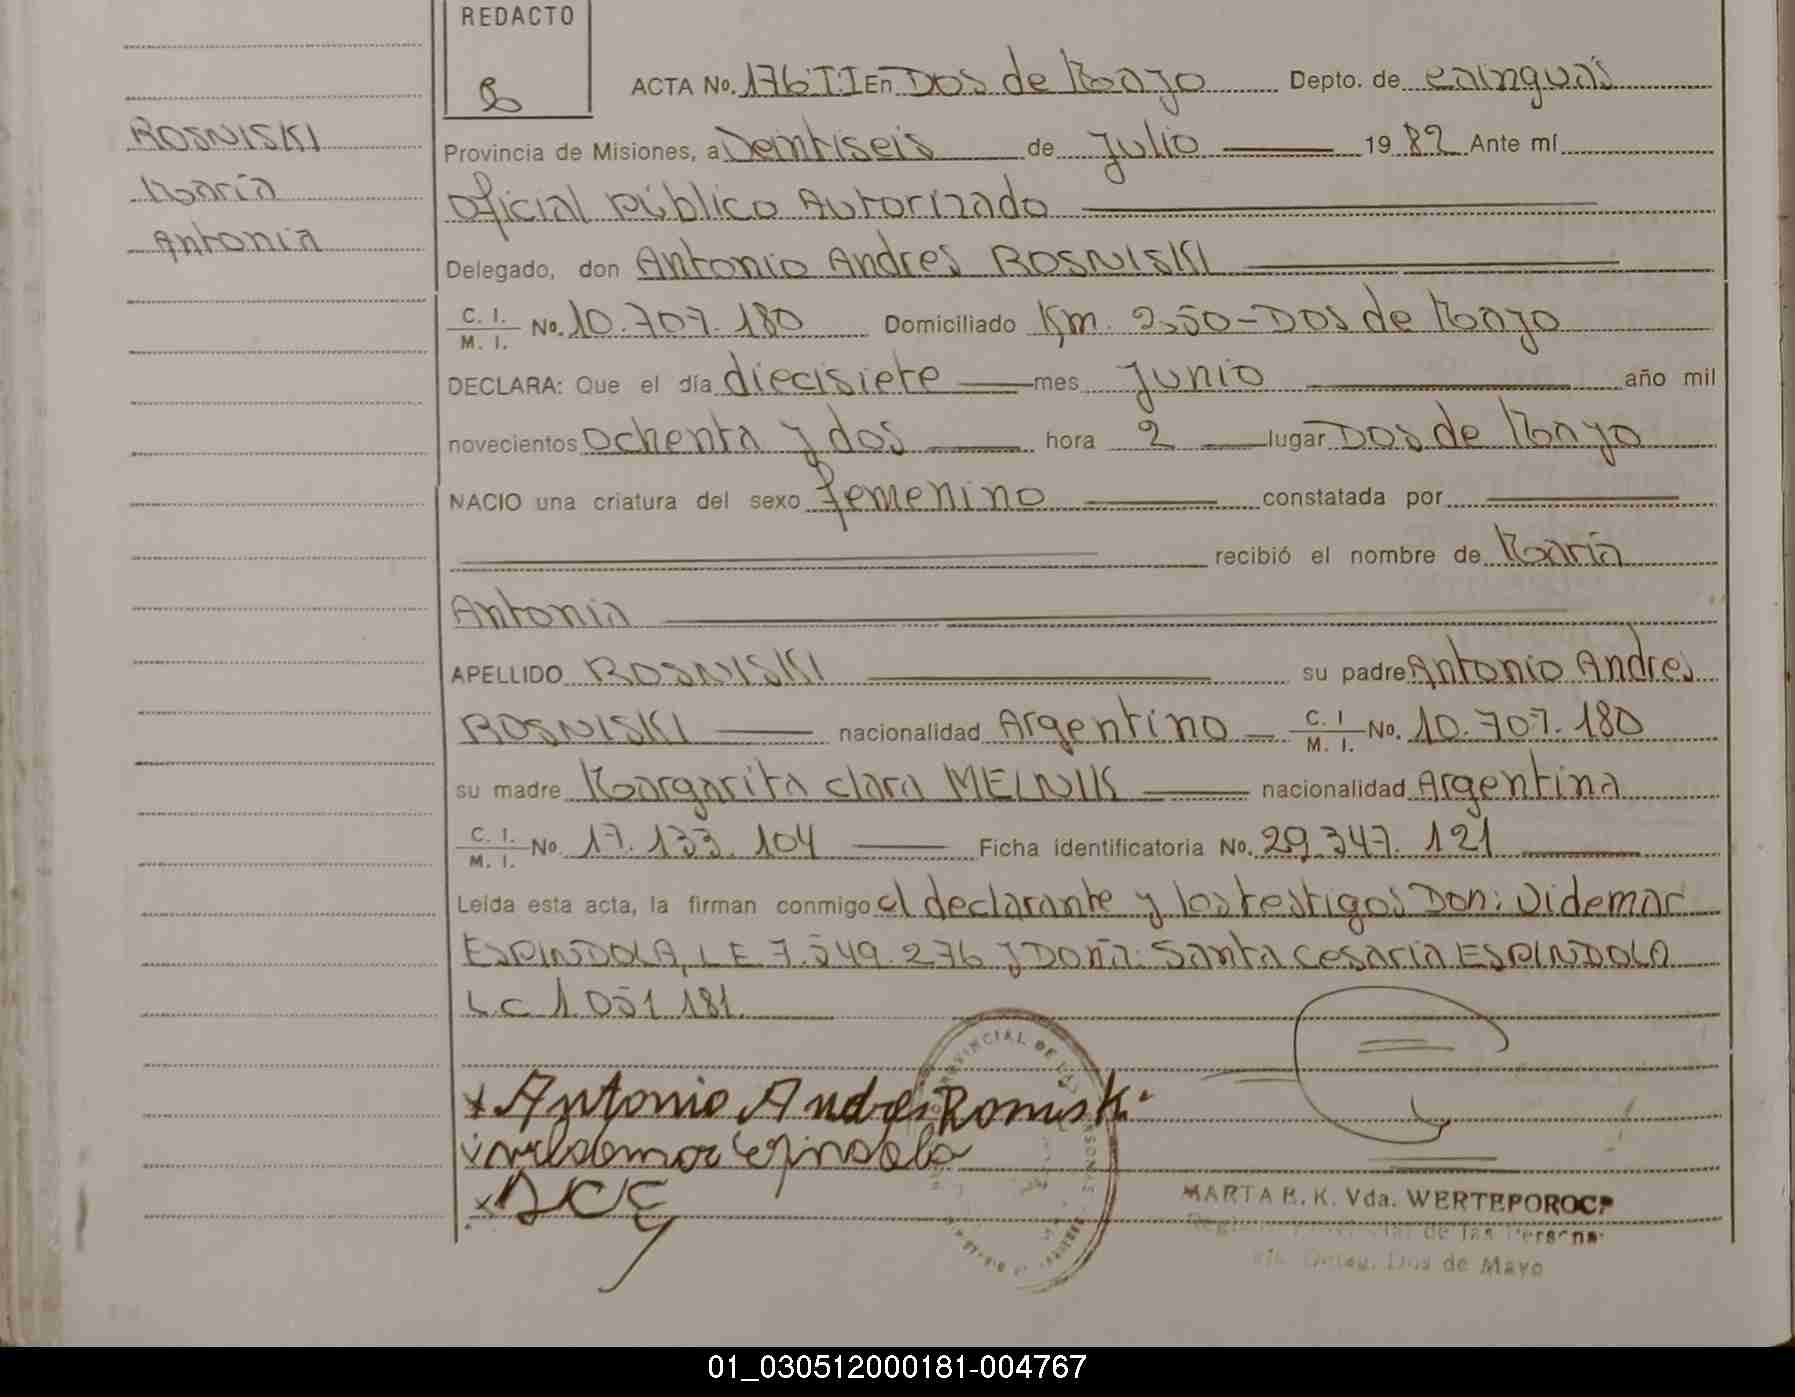 REDACTO
ACTA No. 176 TI En Dos de Mayo Depto. de cainguas
ROSNISKI
María
Antonia
Provincia de Misiones, a Veintiseis de Julio 1982 Ante mí
Oficial público Autorizado
Delegado, don Antonio Andres ROSNISKI
C. I. / M. I. No. 10.707.180 Domiciliado Km. 250-Dos de Mayo
DECLARA: Que el día diecisiete mes Junio año mil
novecientos ochenta y dos hora 2 lugar Dos de Mayo
NACIO una criatura del sexo femenino constatada por
recibió el nombre de María
Antonia
APELLIDO ROSNISKI su padre Antonio Andres
ROSNISKI nacionalidad Argentino C. I / M. I. No. 10.707.180
su madre Margarita clara MELNIK nacionalidad Argentina
C. I. / M. I. No. 17.133.104 Ficha identificatoria No. 29.347.121
Leída esta acta, la firman conmigo el declarante y los testigos Don: Videmar
ESPINDOLA, L E 7.549.276 y Doña: Santa Cesaria ESPINDOLA
L.C 1.051.181.
PROVINCIAL DE LAS PERSONAS
x Antonio Andres Roniski
Espindola
x SCE
MARTA R. K. Vda. WERTEPOROC
Registro Provincial de las Persona
Deleg. Dos de Mayo
01_030512000181-004767